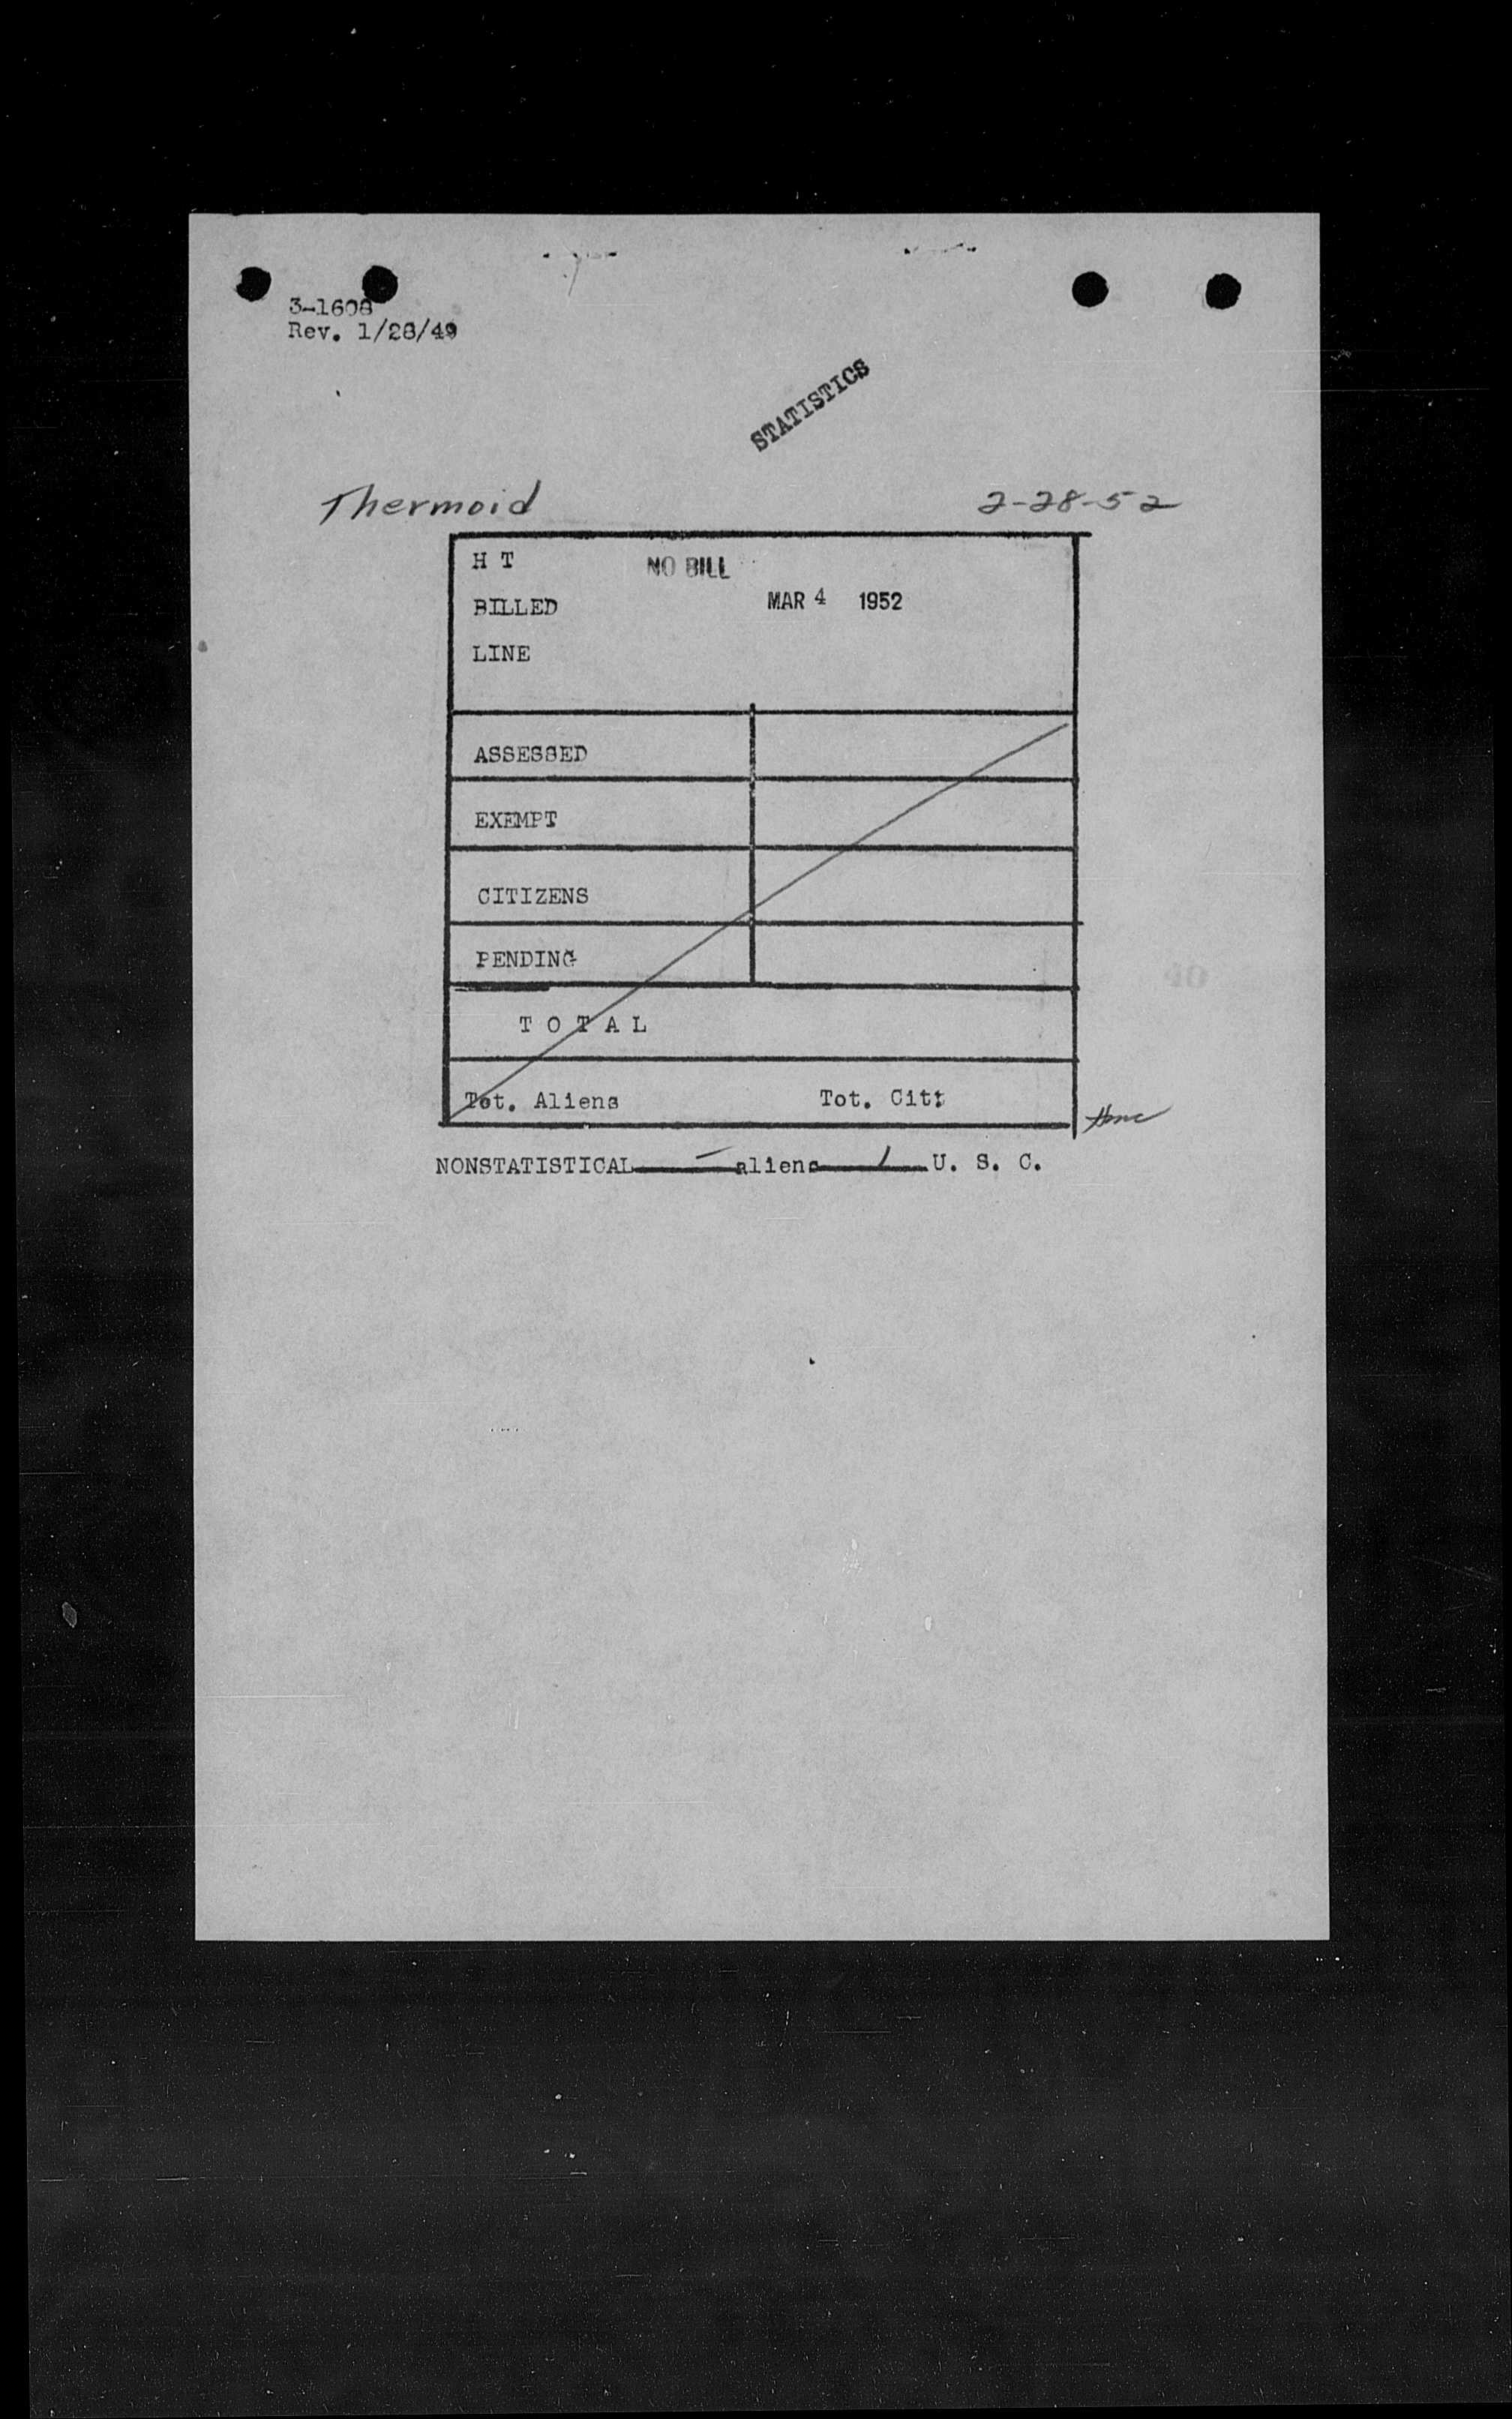 3-1608
Rev. 1/28/49
STATISTICS
Thermoid 2-28-52
H T NO BILL
BILLED MAR 4 1952
LINE
ASSESSED
EXEMPT
CITIZENS
PENDING
T O T A L
Tot. Aliens Tot. Citz
NONSTATISTICAL - aliens 1 U. S. C.